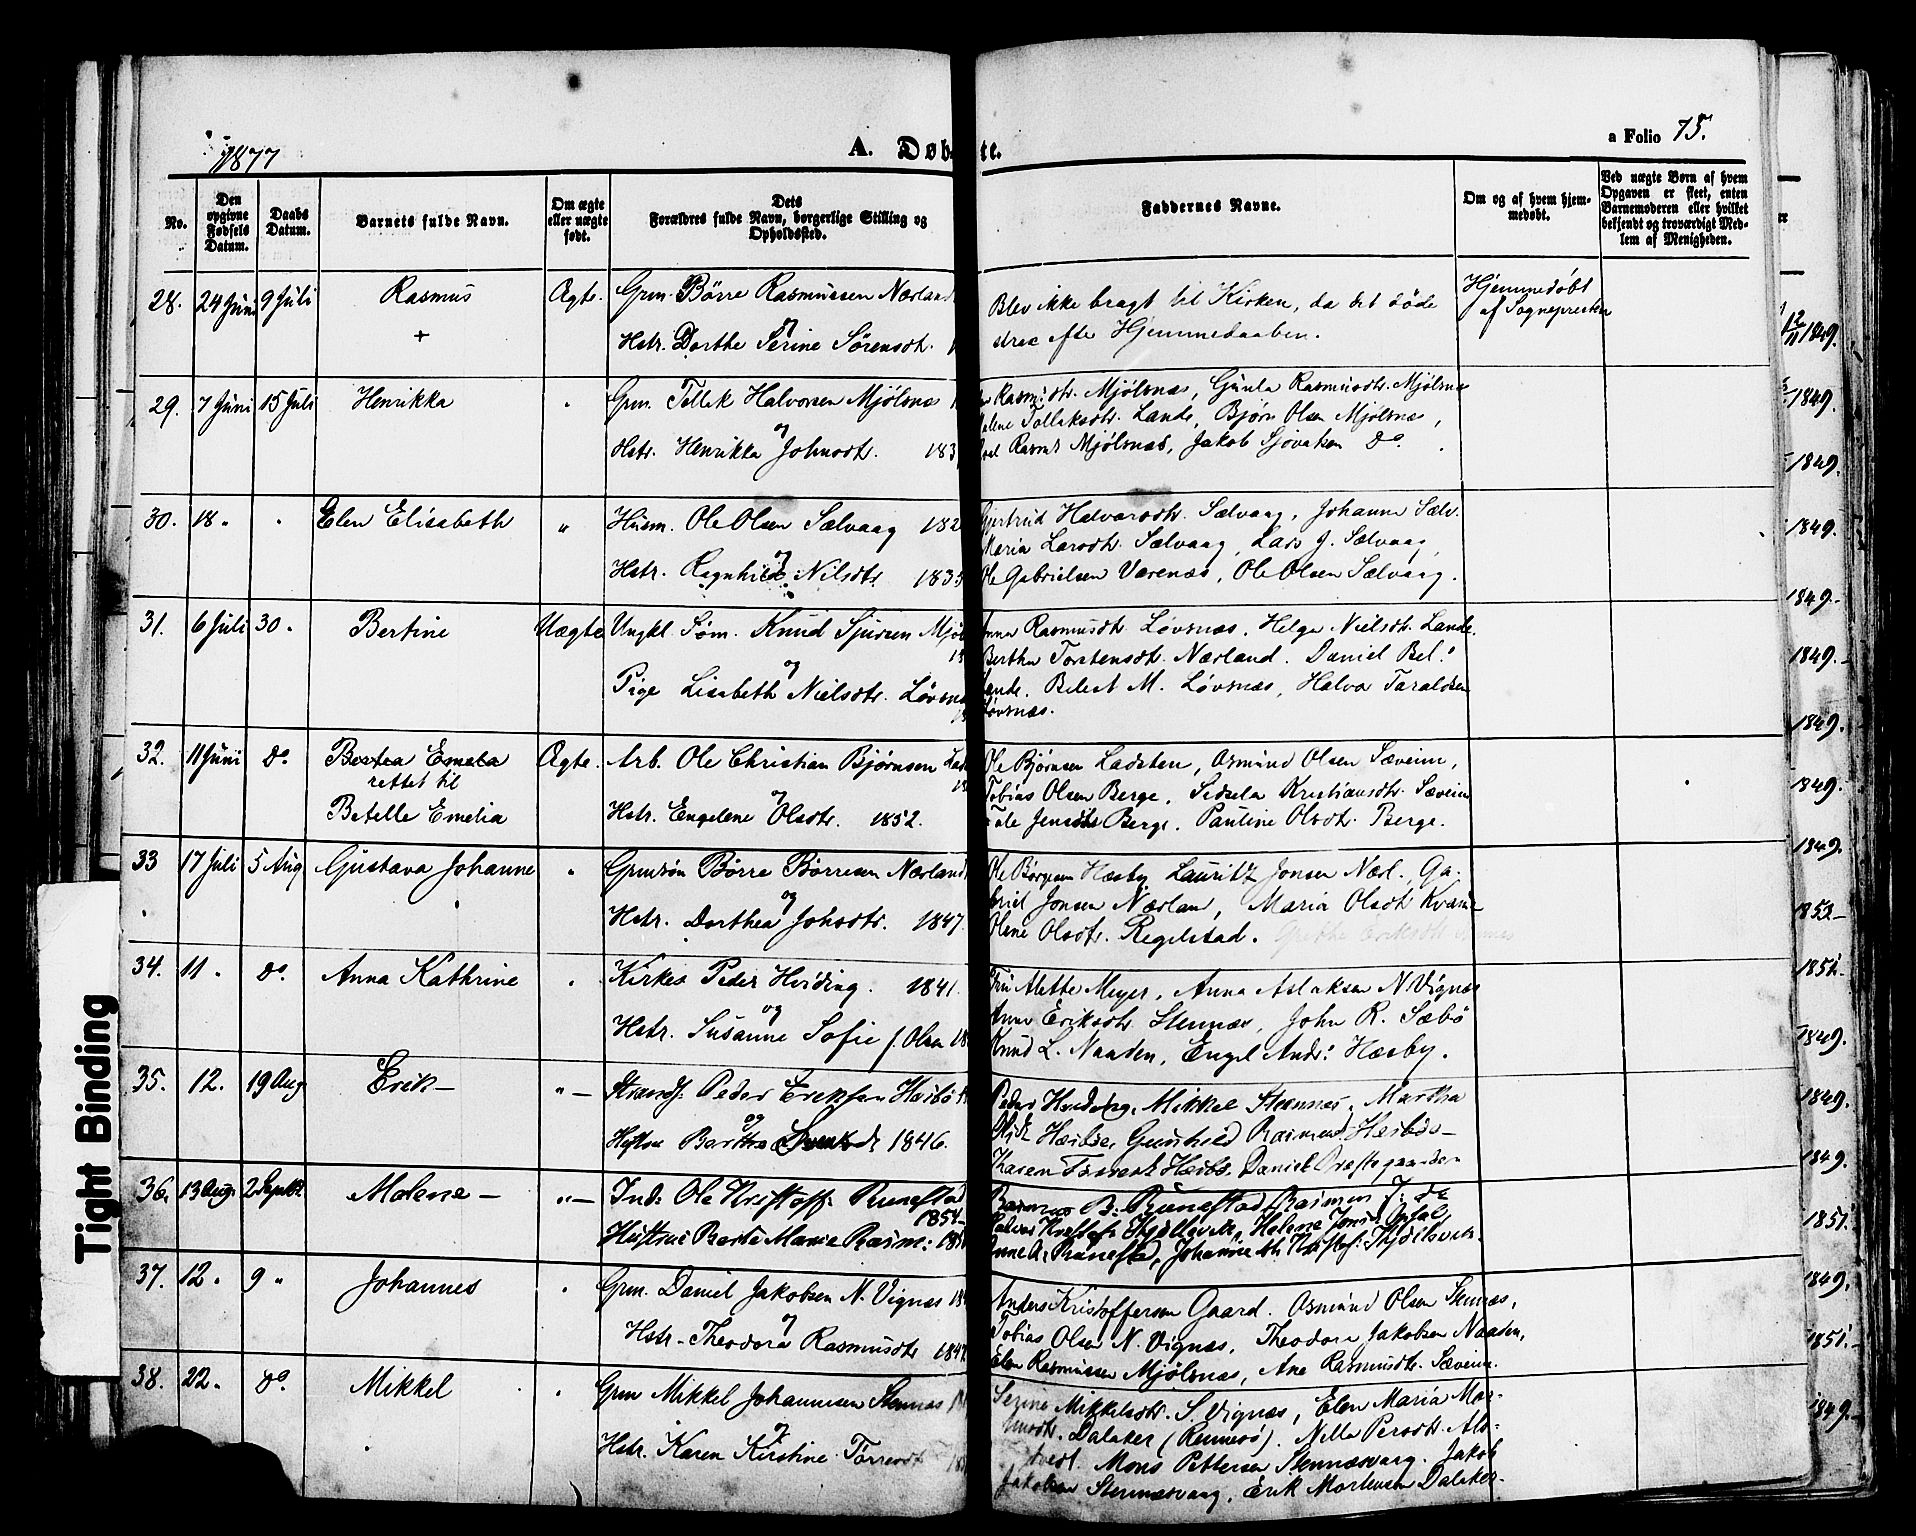 1877
A. Døbte.
a Folio 75.
No.
Den opgivne Fødsels Datum.
Daabs Datum.
Barnets fulde Navn.
Om ægte eller uægte født.
Dets Forældres fulde Navn, borgerlige Stilling og Opholdssted.
Faddernes Navne.
Om og af hvem hjemmedøbt.
Ved uægte Børn af hvem Opgaven er skeet, enten Barnemoderen eller hvilket bekjendt og troværdigt Medlem af Menigheden.
28. 24 Juni 9 Juli Rasmus Ægte. Grm. Børre Rasmussen Nærland
+ og
Hstr. Dorthe Serine Sørensdt.
Blev ikke bragt til Kirken, da det døde
strax efte Hjemmedaaben.
Hjemmedøbt
af Sognepresten
29. 7 Juni 15 Juli Henrikka " Grm. Tollak Halvorsen Mjølsnæs
og
Hstr. Henrikka Johnsdt. 183
Rasmsdtr. Mjølsnæs, Gunla Rasmusdtr. Mjølsnæ
Tollaksdtr. Lande, Bjørn Olsen Mjølsnæs,
Mjølsnæs, Jakob Sjovatsen do.
30. 18 " " Elen Elisabeth " Husm. Ole Olsen Sælvaag 182
og
Hstr. Ragnhild Nilsdtr. 1835
Gjertrud Halvorsdtr. Sælvaag, Johanna Sælv.
Maria Larsdtr. Sælvaag, Lars J. Sælvaag,
Ole Gabrielsen Varenæs, Ole Olsen Sælvaag.
31. 6 Juli 30. Bertine Uægte Ungkl. Søm. Knud Sjursen Mjøl
og
Pige Lisabeth Nielsdtr. Løvsnæ
Anna Rasmusdtr. Løvsnæs, Helga Nielsdtr. Lande.
Bertha Torstensdtr. Nærland. Daniel Bel.
Lande. Belest M. Løvsnæs, Halvor Taraldsen
Løvsnæs.
32. 11 Juni do. Bertea Emelia Ægte. Arb. Ole Christian Bjørnsen Lad
rettet til og
Betelle Emelia Hstr. Engelene Olsdtr. 1852.
Ole Bjørnsen Ladsten, Osmund Olsen Sæveim,
Tobias Olsen Berge, Sidsela Kristiansdtr. Sæveim
Jensdtr Berge. Pauline Olsdtr. Berge.
33 17 Juli 5 Aug Gustava Johanne " Grmsøn Børre Børresen Nærland
og
Hstr. Dorthea Johsdtr. 1847.
Ole Børresen Hæsby Lauritz Jonsen Nærl., Ga-
briel Jonsen Nærland, Maria Olsdtr Kvarne
Olene Olsdtr. Regelstad.
34. 11 " do. Anna Kathrine " Kirkes Peder Hviding. 1841.
og
Hstr. Susanne Sofie f. Olsen 18
Fru Alette Meyer, Anna Aslaksen N. Vignæs
Anna Eriksdtr. Stennæs, John R. Sæbø
Knud L. Naaden, Engel Andr: Hæsby.
35. 12. 19 Aug Erik — " — Strands. Peder Eriksen Hæsbø
og
Hustru Bartha Svends dt 1846.
Peder Hviding, Mikkel Stennæs. Martha
Olsdtr Hæsbø, Gunhild Rasmus: Hæsbø —
Karen Hæsbø. Daniel Præstegaarden
36. 13 Aug. 2 Septbr Malene — " — Ind: Ole Kristoff: Runestad
1854 —
Hustrue Berte Marie Rasm: 185
Rasmus B. Runestad Rasmus J: do
Kristofs: Skjøllevik, Helene Jons:
Anne A. Runestad, Johanne Kristof: Skjølevik.
37. 12 " 9 " Johannes " Grm. Daniel Jakobsen N. Vignæs 184
og
Hstr. Theodora Rasmusdtr 1847
Anders Kristoffersen Gaard. Osmund Olsen Stennæs,
Tobias Olsen N. Vignæs, Theodora Jakobsen Naaden,
Elen Rasmussen Mjølsnæs, Ane Rasmusdtr. Sæveim.
38. 22. do. Mikkel " Grm Mikkel Johannesen Stennæs
og
Hstr. Karen Kirstine Tørresdt
Serine Mikkelsdtr. S Vignæs, Elen Maria Mor-
tensdtr. Dalaker (Rennesø). Nilla Persdtr. Als-
tvedt. Mons Pettersen Stennæsvaag. Jakob
Jakobsen Stennæsvaag, Erik Mortensen Dalaker.
12/11 1849.
1849.
1849.
1849.
1849.
1849.
1849.
1849.
1849.
1852
1851
1849.
1849.
1849.
1851
1849.
1851.
1849.
Tight Binding